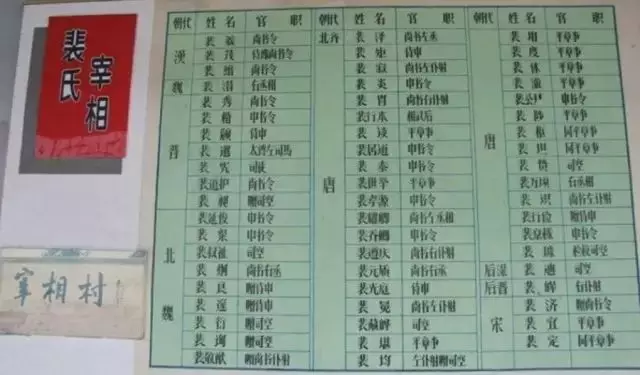 裴氏
宰相
宰相村
朝代 姓名 官职
漢
裴 尚书令
裴茂 尚书令
魏
裴 尚书令
裴潜 右丞相
晋
裴秀 尚书令
裴楷 中书令
裴頠 侍中
裴邈 太傅左司马
裴宪 司徒
裴道护 尚书令
裴 赠司空
北魏
裴延俊 中书令
裴 中书令
裴叔祉 司空
裴炯 尚书右丞
裴良 赠侍中
裴邃 赠侍中
裴衍 赠司空
裴询 赠司空
裴敬猷 赠尚书仆射
朝代 姓名 官职
北齐
裴泽 尚书左丞
唐
裴矩 侍中
裴寂 尚书左仆射
裴炎 中书令
裴胄 尚书右仆射
裴行本
裴谈 平章事
裴居道 中书令
裴 中书令
裴世举 平章事
裴孝源 中书令
裴耀卿 尚书左丞相
裴乔卿 中书令
裴遵庆 尚书右仆射
裴元质 尚书右丞
裴光庭 侍中
裴冕 尚书左仆射
裴 司空
裴堪 平章事
裴均 左仆射赠司空
朝代 姓名 官职
唐
裴垍 平章事
裴度 平章事
裴休 平章事
裴 平章事
裴 中书令
裴 平章事
裴枢 同平章事
裴坦 同平章事
裴贽 司空
裴 右丞相
裴识 尚书左仆射
裴行俭 赠侍中
裴 中书令
裴 检校司空
后梁
裴迪 司空
后晋
裴皞 右仆射
宋
裴济 赠尚书令
裴宜 平章事
裴定 同平章事